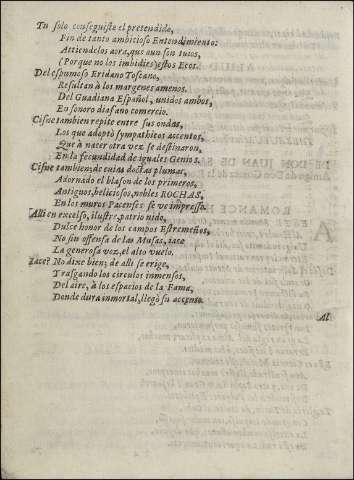 Tu solo conseguiste el pretendido,
Fin de tanto ambicioso Entendimiento:
Attiendelos aora, que aun son tuios,
(Porque no los imbidies) estos Ecos.
Del espumoso Eridano Toscano,
Resultan à los margenes amenos.
Del Guadiana Español, unidos ambos,
En sonoro diafano comercio.
Cisne tambien repite entre sus ondas,
Los que adoptò sympathicos accentos,
Que à nacer otra vez se destinaron,
En la fecundidad de iguales Genios.
Cisne tambien, de cuias doctas plumas,
Adornado el blason de los primeros,
Antiguos, beliciosos, nobles ROCHAS,
En los muros Pacenses se ve impresso.
Alli en excelso, ilustre, patrio nido,
Dulce honor de los campos Estremeños,
No sin offensa de las Musas, iace
La generosa vez, el alto vuelo.
Iace? No dixe bien; de alli se erige,
Trasgando los circulos inmensos,
Del aire, à los espacios de la Fama,
Donde dura inmortal, llegò su accento.
Al